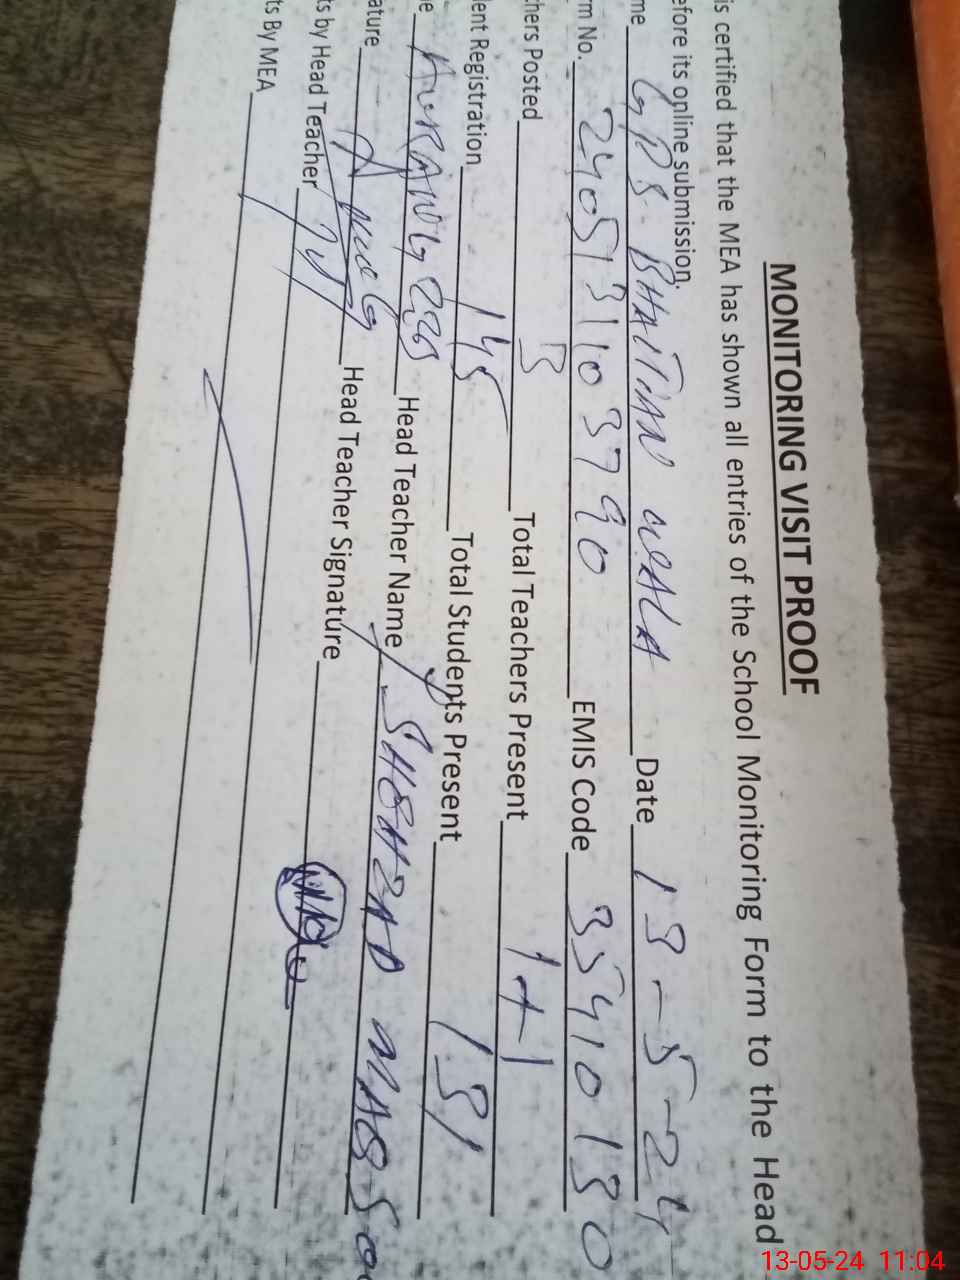 MONITORING VISIT PROOF
is certified that the MEA has shown all entries of the School Monitoring Form to the Head
efore its online submission.
me GPS. BHATTIAN WALA Date 13-5-24
rm No. 2405131103790 EMIS Code 35410130
chers Posted 3 Total Teachers Present 1+1
ent Registration 145 Total Students Present 131
e Head Teacher Name SHEHZAD
ature Head Teacher Signature
ts by Head Teacher
ts By MEA
13-05-24 11:04